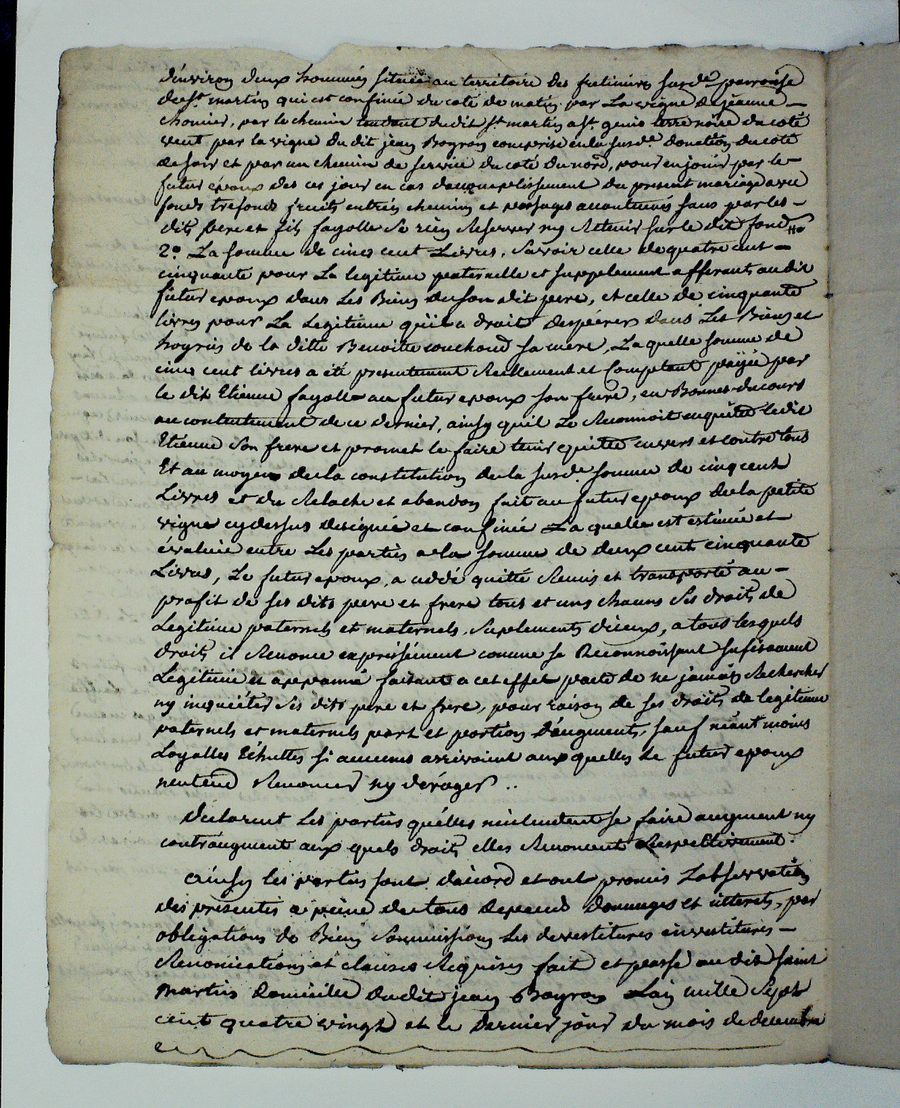 d'environ deux hommées située au territoire des susd.e parroisse
de st. martin qui est confinée du coté de matin par La vigne de jeanne
chomier, par le chemin tendant dudit st. martin a st. genis terre noire du coté
vent par la vigne du dit jean Boyron comprise en la susd.e donation du coté
de soir et par un chemin de service du coté du nord, pour en jouir par le
futur epoux des ces jour en cas dacomplissement du present mariage avec
fonds trefonds fruits entrées chemins et passages accoutumés sans par les
dits pere et fils fayolle se rien Reserver ny Retenir sur le dit fond
2.o La somme de cinq cent Livres, savoir celle de quatre cent
cinquante pour La legitime paternelle et supplement afferants audit
futur epoux dans Les Biens de son dit pere, et celle de cinquante
livres pour La Legitime qu'il a droit d'espérer dans Les Biens et
hoyries de la ditte Benoitte couchoud sa mere, La quelle somme de
cinq cent livres a été presentement Reellement et Comptant payée par
le dit Etienne fayolle au futur epoux son frere, en Bonnes ducours
au contentement de ce dernier, ainsy quil Le Reconnoit en quitte ledit
Etienne son frere et promet le faire tenir quitte envers et contre tous
Et au moyen de la constitution de la susd.e somme de cinq cent
Livres et du Relache et abandon fait au futur epoux de la petite
vigne cydessus designée et confinée La quelle est estimée et
évaluée entre Les parties a la somme de deux cent cinquante
Livres, Le futur epoux, a cédé quitté Remis et transporté au
profit de ses dits pere et frere tous et uns chacuns ses droits de
Legitime paternels et maternels, suplements d'iceux, a tous lesquels
droits il Renonce expressément comme se Reconnoissant sufisament
Legitimé et appanné faisant a cet effet pacte de ne jamais Rechercher
ny inquiéter ses dits pere et frere, pour raison de ses droits de legitime
paternels et maternels part et portion d'augments, sauf néant moins
Loyalles Echuttes si aucunes arrivoient aux quelles Le futur epoux
n'entend Renoncer ny déroger ..
Declarent Les parties qu'elles n'entendent se faire augment ny
contraugment aux quels droits elles Renoncent Respectivement.
Ainsy les parties sont daccord et ont promis Lobservation
des presentes a peine de tous depends domages et interets, par
obligations de Biens soumissions Les devestitures investitures
Renonciations et clauses Requises fait et passé au dit saint
martin domicile dudit jean Boyron Lan mille sept
cent quatre vingt et le dernier jour du mois de decembre